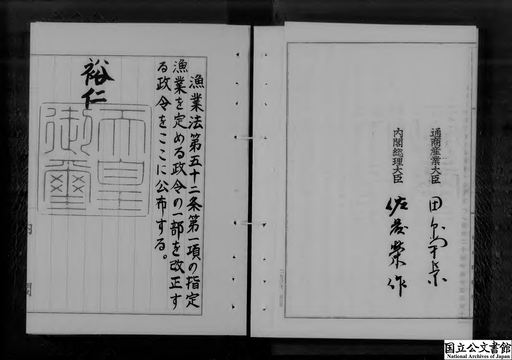 漁業法第五十二条第一項の指定
漁業を定める政令の一部を改正す
る政令をここに公布する。
裕仁
天皇
御璽
内閣
通商産業大臣
内閣総理大臣 佐藤榮作
国立公文書館
National Archives of Japan